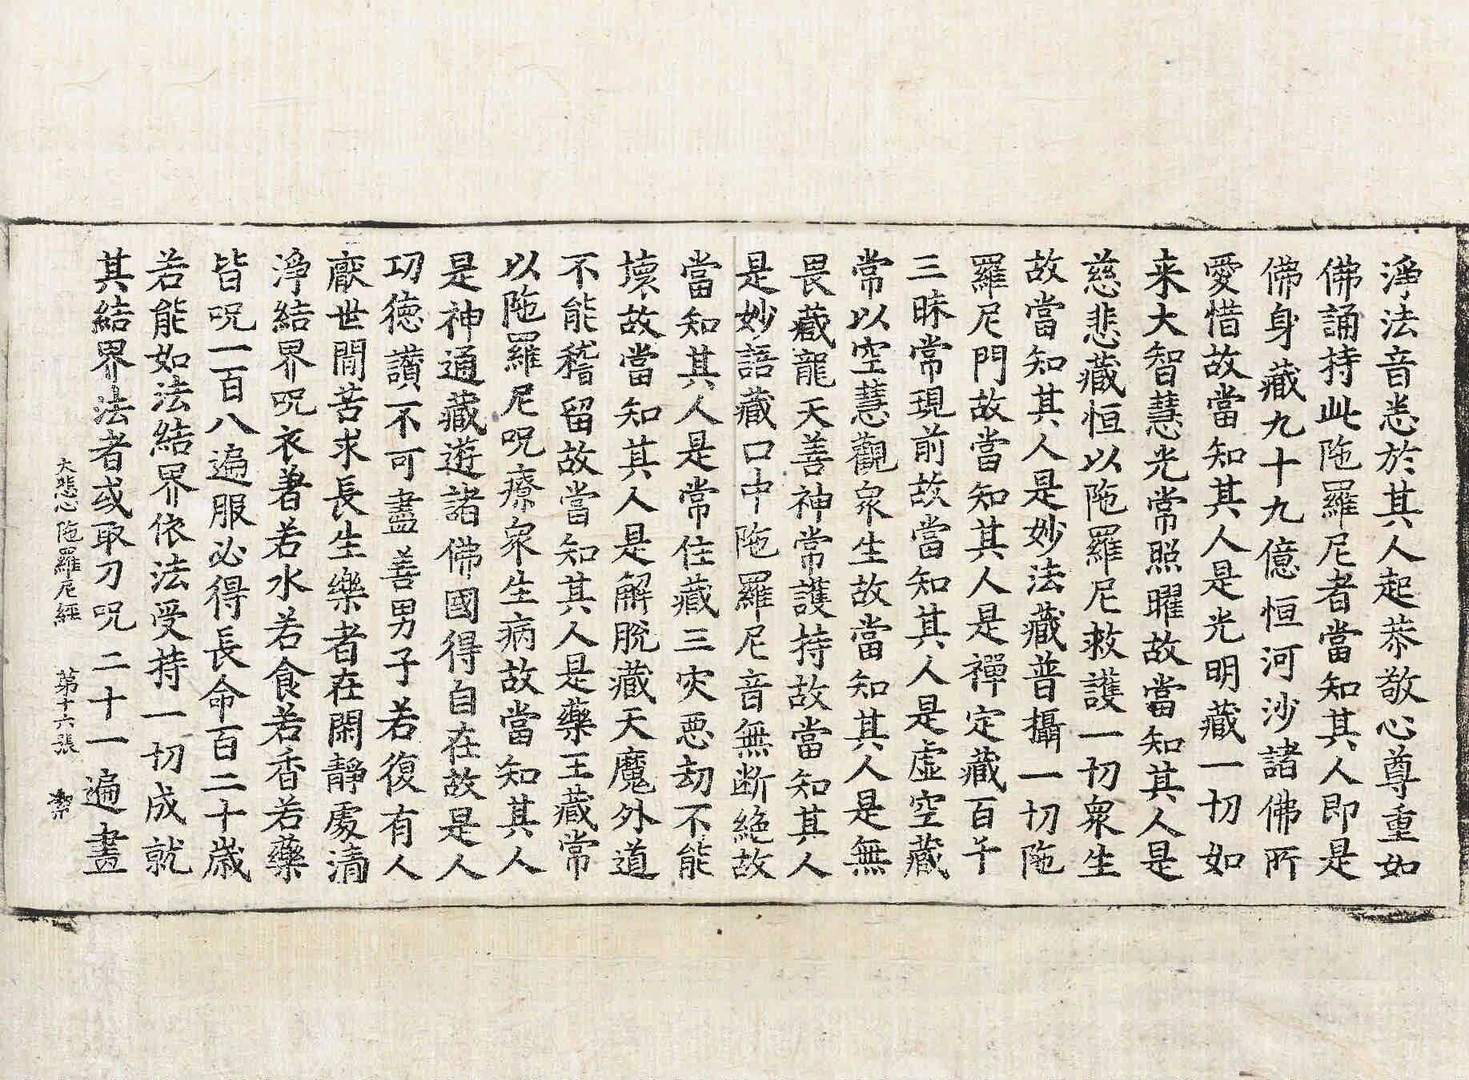 淨法音悉於其人起恭敬心尊重如
佛誦持此陁羅尼者當知其人即是
佛身藏九十九億恒河沙諸佛所
愛惜故當知其人是光明藏一切如
来大智慧光常照曜故當知其人是
慈悲藏恒以陁羅尼救護一切衆生
故當知其人是妙法藏普攝一切陁
羅尼門故當知其人是禪定藏百千
三昧常現前故當知其人是虛空藏
常以空慧觀衆生故當知其人是無
畏藏龍天善神常護持故當知其人
是妙語藏口中陁羅尼音無断絶故
當知其人是常住藏三灾惡劫不能
壞故當知其人是解脫藏天魔外道
不能稽留故當知其人是藥王藏常
以陁羅尼呪療衆生病故當知其人
是神通藏遊諸佛國得自在故是人
功德讚不可盡善男子若復有人
厭世間苦求長生樂者在閑靜處清
淨結界呪衣著若水若食若香若藥
皆呪一百八遍服必得長命百二十歲
若能如法結界依法受持一切成就
其結界法者或取刀呪二十一遍畫
大悲心陁羅尼經 第十六張